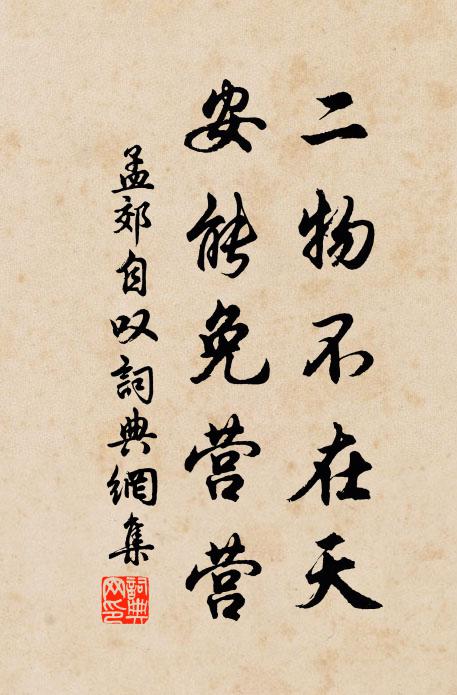 二物不在天
安能免营营
孟郊自叹詞典網集
詞典
网印